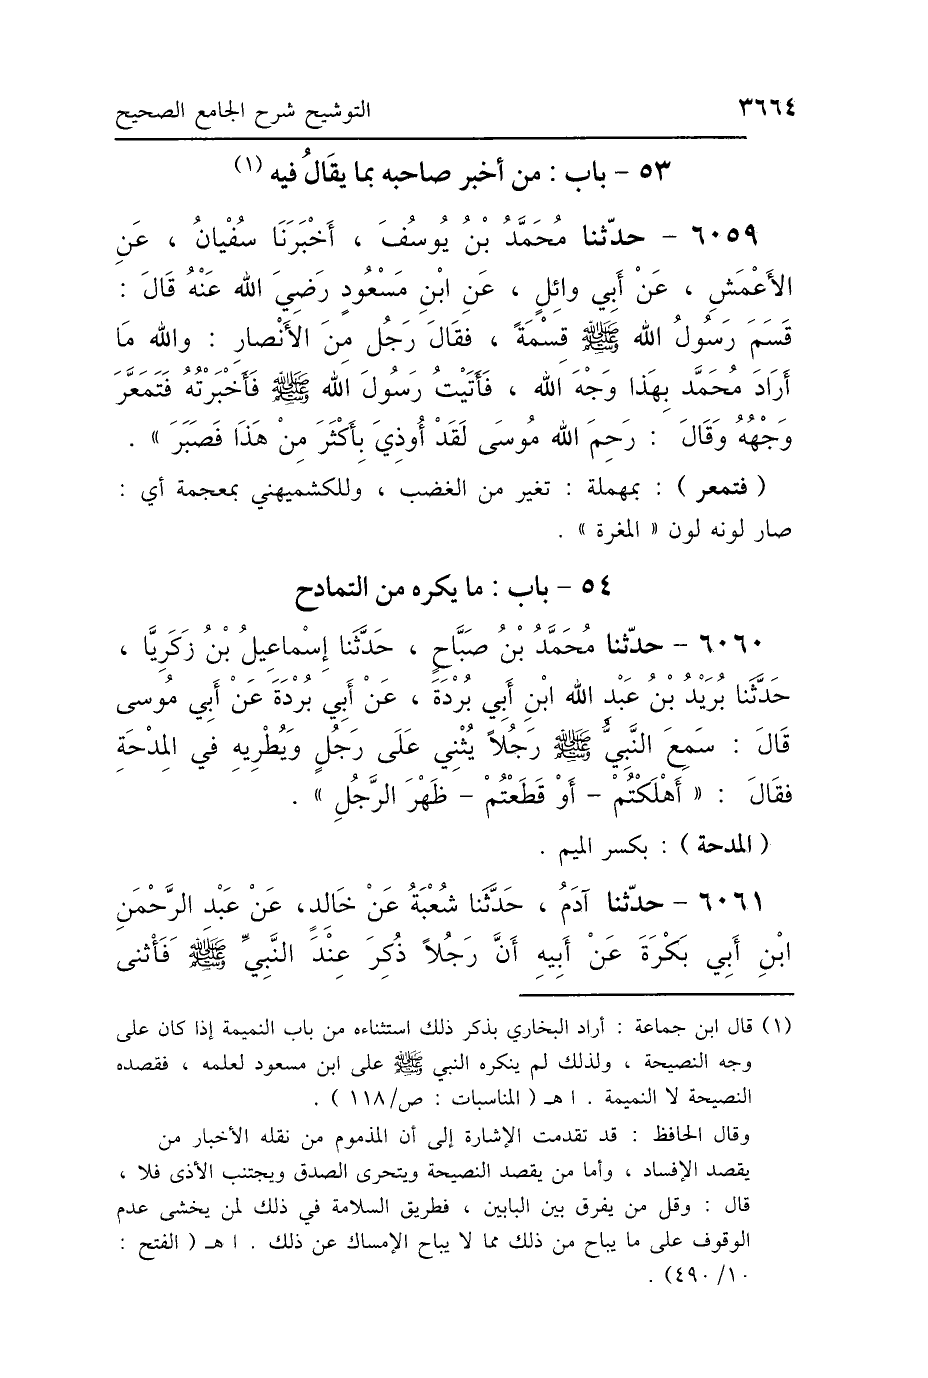 ٣٦٦٤ التوشيح شرح الجامع الصحيح
٥٣ - باب : من أخبر صاحبه بما يقَالُ فيه (١)
٦٠٥٩ - حدّثنا مُحَمَّدُ بْنُ يُوسُفَ ، أَخْبَرَنَا سُفْيانُ ، عَنِ
الأَعْمَشِ ، عَنْ أَبي وائلٍ ، عَنِ ابْنِ مَسْعُودٍ رَضيَ الله عَنْهُ قَالَ :
قَسَمَ رَسُولُ الله ﷺ قِسْمَةً ، فقَالَ رَجُل مِنَ الأَنْصارِ : والله مَا
أَرَادَ مُحَمَّد بِهَذا وَجْهَ الله ، فَأَتَيْتُ رَسُولَ الله ﷺ فَأَخْبَرتُهُ فَتَمَعَّرَ
وَجْهُهُ وَقَالَ : رَحِمَ الله مُوسَى لَقَدْ أُوذِيَ بِأَكْثَرَ مِنْ هَذَا فَصَبَرَ » .
( فتمعر ) : بمهملة : تغير من الغضب ، وللكشميهني بمعجمة أي :
صار لونه لون « المغرة » .
٥٤ - باب : ما يكره من التمادح
٦٠٦٠ - حدّثنا مُحَمَّدُ بْنُ صَبَّاحٍ ، حَدَّثَنا إِسْماعِيلُ بْنُ زَكَرِيَّا ،
حَدَّثَنا بُرَيْدُ بْنُ عَبْدِ الله ابْنِ أَبي بُرْدَةَ ، عَنْ أَبي بُرْدَةَ عَنْ أَبي مُوسى
قَالَ : سَمِعَ النَّبِيُّ ﷺ رَجُلاً يُثْنِي عَلَى رَجُلٍ وَيُطْرِيهِ في المِدْحَةِ
فقَالَ : « أَهْلَكْتُمْ - أَوْ قَطَعْتُمْ - ظَهْرَ الرَّجُلِ » .
( المدحة ) : بكسر الميم .
٦٠٦١ - حدّثنا آدَمُ ، حَدَّثَنا شُعْبَةُ عَنْ خَالِدٍ، عَنْ عَبْدِ الرَّحْمَنِ
ابْنِ أَبي بَكْرَةَ عَنْ أَبِيهِ أَنَّ رَجُلاً ذُكِرَ عِنْدَ النَّبِيِّ ﷺ فَأَثْنى
(١) قال ابن جماعة : أراد البخاري بذكر ذلك استثناءه من باب النميمة إذا كان على
وجه النصيحة ، ولذلك لم ينكره النبي ﷺ على ابن مسعود لعلمه ، فقصده
النصيحة لا النميمة . ا هـ ( المناسبات : ص/١١٨ ) .
وقال الحافظ : قد تقدمت الإشارة إلى أن المذموم من نقله الأخبار من
يقصد الإفساد ، وأما من يقصد النصيحة ويتحرى الصدق ويجتنب الأذى فلا ،
قال : وقل من يفرق بين البابين ، فطريق السلامة في ذلك لمن يخشى عدم
الوقوف على ما يباح من ذلك مما لا يباح الإمساك عن ذلك . ا هـ ( الفتح :
٤٩٠/١٠) .